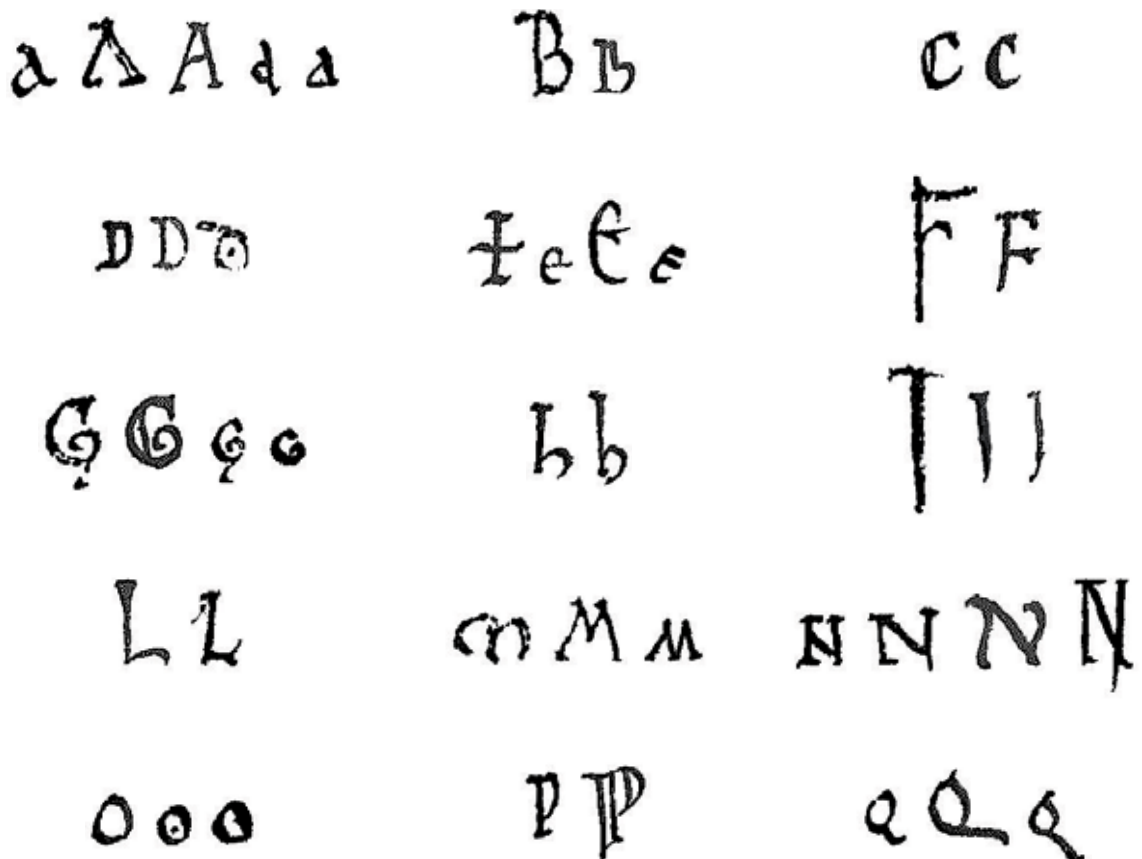 a A A a a B B C C
D D D E e E e F F
G G G G h h I I I
L L m M M N N N N
O O O P P Q Q Q